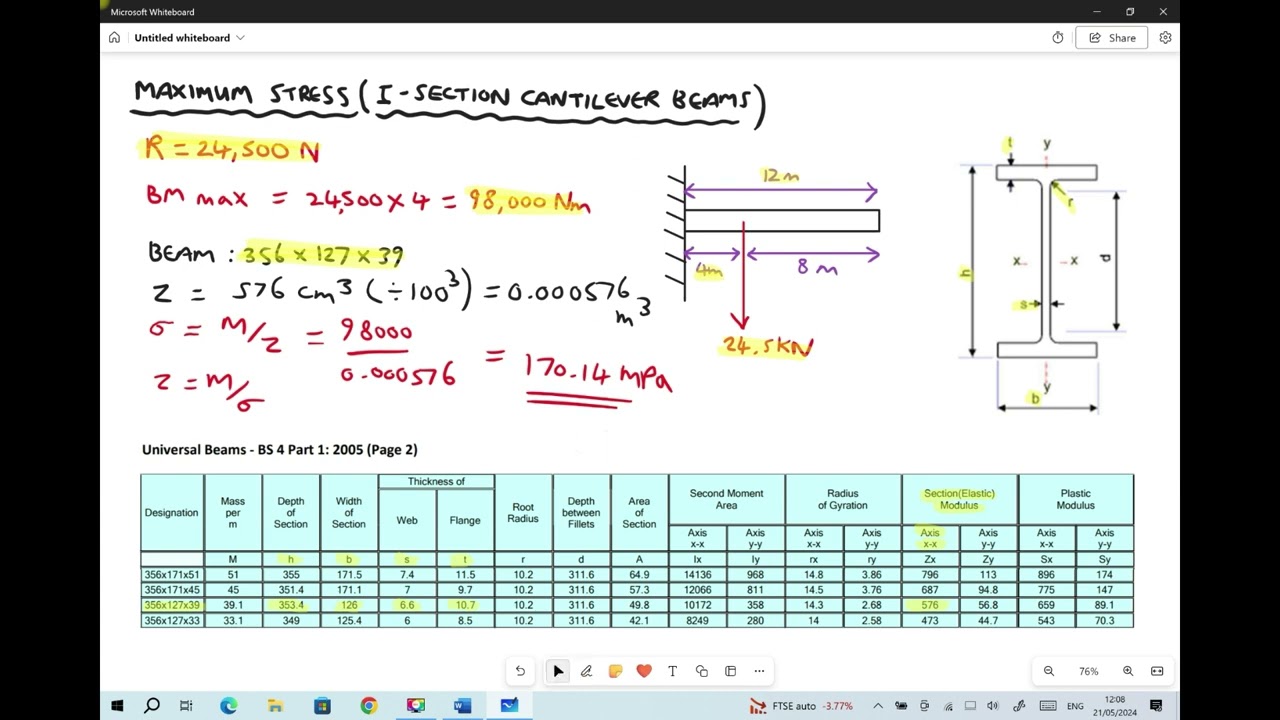 Microsoft Whiteboard
Untitled whiteboard
Share
MAXIMUM STRESS (I-SECTION CANTILEVER BEAMS)
R = 24,500 N
BM max = 24,500 x 4 = 98,000 Nm
BEAM : 356 x 127 x 39
Z = 576 cm³ (÷100³) = 0.000576 m³
σ = M/Z = 98000 / 0.000576 = 170.14 MPa
Z = M/σ
12m
4m
8 m
24.5KN
t
y
r
h
x
x
d
s
y
b
Universal Beams - BS 4 Part 1: 2005 (Page 2)
Designation Mass per m Depth of Section Width of Section Thickness of Web Flange Root Radius Depth between Fillets Area of Section Second Moment Area Radius of Gyration Section(Elastic) Modulus Plastic Modulus
Axis x-x Axis y-y Axis x-x Axis y-y Axis x-x Axis y-y Axis x-x Axis y-y
M h b s t r d A Ix Iy rx ry Zx Zy Sx Sy
356x171x51 51 355 171.5 7.4 11.5 10.2 311.6 64.9 14136 968 14.8 3.86 796 113 896 174
356x171x45 45 351.4 171.1 7 9.7 10.2 311.6 57.3 12066 811 14.5 3.76 687 94.8 775 147
356x127x39 39.1 353.4 126 6.6 10.7 10.2 311.6 49.8 10172 358 14.3 2.68 576 56.8 659 89.1
356x127x33 33.1 349 125.4 6 8.5 10.2 311.6 42.1 8249 280 14 2.58 473 44.7 543 70.3
76%
FTSE auto -3.77%
ENG
12:08
21/05/2024